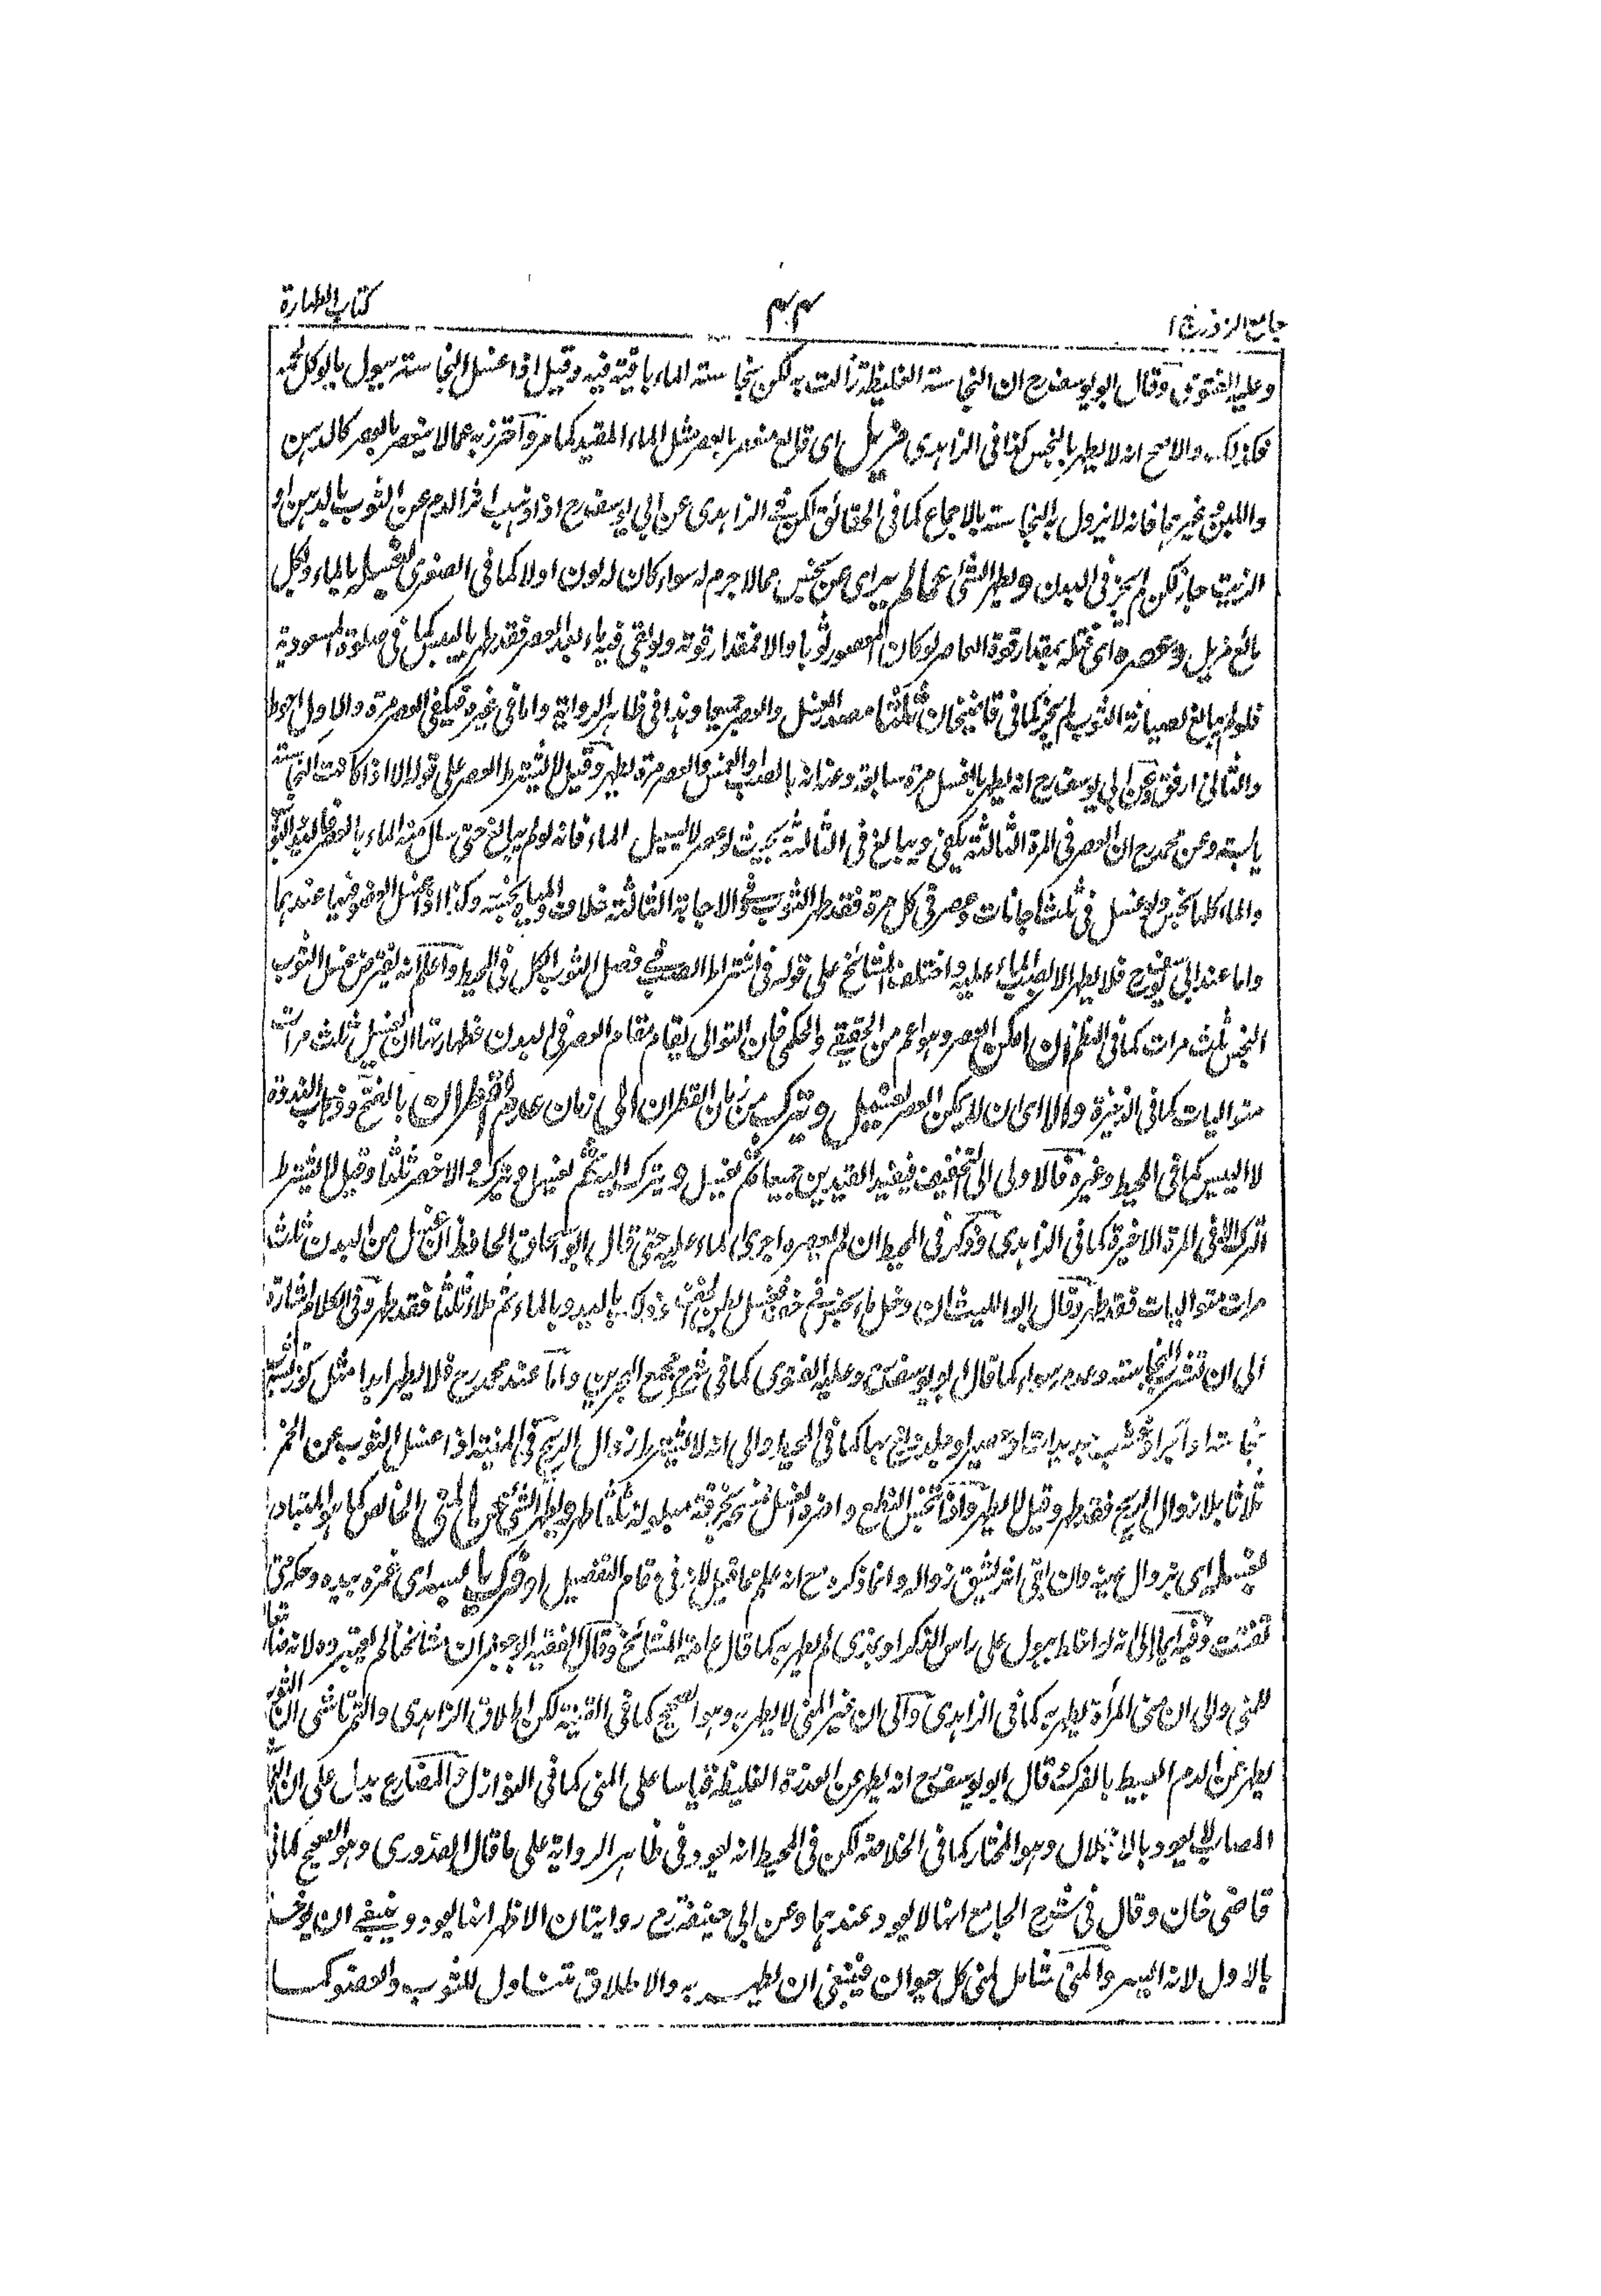 جامع الرموز ج ا
٤٤
كتاب الطهارة
وعليه الفتوى وقال ابو يوسف رح ان النجاسة الغليظة زالت به لكن نجاسة الماء باقية فيه وقيل اذا غسل النجاسة ببول ما يوكل لحمه
فكذلك والاصح انه لا يطهر بالنجس كذا فى الزاهدى مزيل اى قالع منعصر بالعصر مثل الماء المقيد كما مر واحترز به عما لا ينعصر بالعصر كالدهن
واللبن وغيرهما فانه لا يزول به النجاسة بالاجماع كما فى الحقائق لكن فى الزاهدى عن ابى يوسف رح اذا ذهب اثر الدم عن الثوب بالدهن او
الزيت جاز لكن لم يجز فى البدن ويطهر الشئ عما لم ير اى عن نجس مما لا جرم له سواء كان له لون اولا كما فى الصغرى بغسله بالماء وبكل
مائع مزيل وعصره اى فتله بمقدار قوة العاصر لو كان المعصور ثوبا والا فمقدار قوته ولو بقى فيه ماء بعد العصر فقد طهر باليبس كما فى صلوة المسعودية
فلو لم يبالغ لصيانة الثوب لم يجز كما فى قاضيخان ثلثا مصدر الغسل والعصر جميعا وهذا فى ظاهر الرواية واما فى غيره فيكفى العصر مرة والاول احوط
والثانى ارفق وعن ابى يوسف رح انه يطهر بالغسل مرة سابقة وعنه انه بالصب او الغمس والعصر مرة يطهر وقيل لا يشترط العصر على قوله الا اذا كانت النجاسة
يابسة وعن محمد رح ان العصر فى المرة الثالثة يكفى ويبالغ فى الثالثة بحيث لو عصر لا يسيل الماء فانه لو لم يبالغ حتى سال منه الماء بالعصر فاليد والثوب
والماء كلها نجس ولو غسل فى ثلث اجانات وعصر فى كل مرة فقد طهر الثوب والاجانة الثالثة خلاف والمياه نجسة وكذا اذا غسل العضو فيها عندهما
واما عند ابى يوسف رح فلا يطهر الا بصب الماء عليه واختلف المشائخ على قوله فى اشتراط الصب فى فصل الثوب الكل فى المحيط واعلم انه يفترض غسل الثوب
النجس ثلث مرات كما فى النظم ان امكن العصر وهو اعم من الحقيقى والحكمى فان التوالى يقام مقام العصر فى البدن فطهارتها ان يغسل ثلث مرات
متواليات كما فى الذخيرة والا اى ان لا يمكن العصر يغسل ويترك من زمان القطران الى زمان عدم القطران بالفتح وذهاب الندوة
لا اليبس كما فى المحيط وغيره فالاولى الى التجفيف فيفيد القيدين جميعا ثم يغسل ويترك اليه ثم يغسل ويترك والاخصر ثلثا وقيل لا يشترط
الترك الا فى المرة الاخيرة كما فى الزاهدى وذكر فى المحيط ان لم يعصره اجرى الماء عليه حتى قال ابو اسحاق الحافظ ان غسل من البدن ثلث
مرات متواليات فقد طهر وقال ابو الليث ان دخل ماء نجس فى خفه فغسل بطن الخف ودلكه باليد وبالماء ثم ملأه ثلثا فقد طهر وفى الكلام اشارة
الى ان تشرب النجاسة وعدمه سواء كما قال ابو يوسف رح وعليه الفتوى كما فى شرح مجمع البحرين واما عند محمد رح فلا يطهر ابدا مثل كوز تشرب
نجاسة او آجر او خشب جديدات او حصير او جلد دبغ بها كما فى المحيط والى انه لا يشترط زوال الريح وفى المنية اذا غسل الثوب عن الخمر
ثلاثا بلا زوال الريح فقد طهر وقيل لا يطهر واذا تنجس النطع واضره الغسل بخرقة مبلولة ثلثا طهر ويطهر الشئ عن المنى الخالص كما هو المتبادر
بغسله اى بزوال عينه وان بقى اثر يشق زواله وانما ذكره مع انه علم مما قبل لانه فى مقام التفصيل او فرك يابسه اى غمزه بيده وحكه حتى
تفتت وفيه ايماء الى انه لو اختلط ببول على راس الذكر او بمذى لم يطهر به كما قال عامة المشائخ وقال الفقيه ابو جعفر ان مشائخنا لم يعتبروه لانه
للمنى والى ان منى المرأة يطهر به كما فى الزاهدى والى ان غير المنى لا يطهر به وهو الصحيح كما فى القنية لكن اطلاق الزاهدى والتمرتاشى ان الثوب
يطهر عن الدم العبيط بالفرك قال ابو يوسف رح انه يطهر عن العذرة الغليظة قياسا على المنى كما فى النوازل والمضارع يدل على ان
المصاب لا يعود بالابتلال وهو المختار كما فى الخلاصة لكن فى المحيط انه يعود فى ظاهر الرواية على ما قال القدورى وهو الصحيح كما فى
قاضى خان وقال فى شرح الجامع انها لا يعود عندهما وعن ابى حنيفة رح روايتان الاظهر انها يعود وينبغى ان يوخذ
بالاول لانه ايسر والمنى شامل لمنى كل حيوان فينبغى ان يطهر به والاطلاق تتناول للثوب والعضو كما